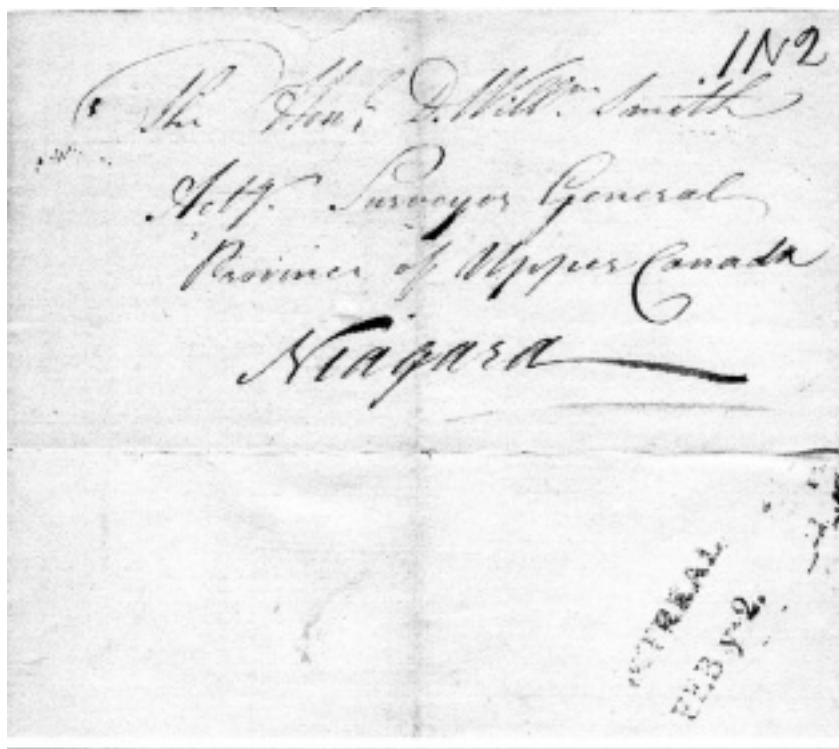 1N2
The Hon. D. Willm. Smith
Actg. Surveyor General
Province of Upper Canada
Niagara
FEB y 2.